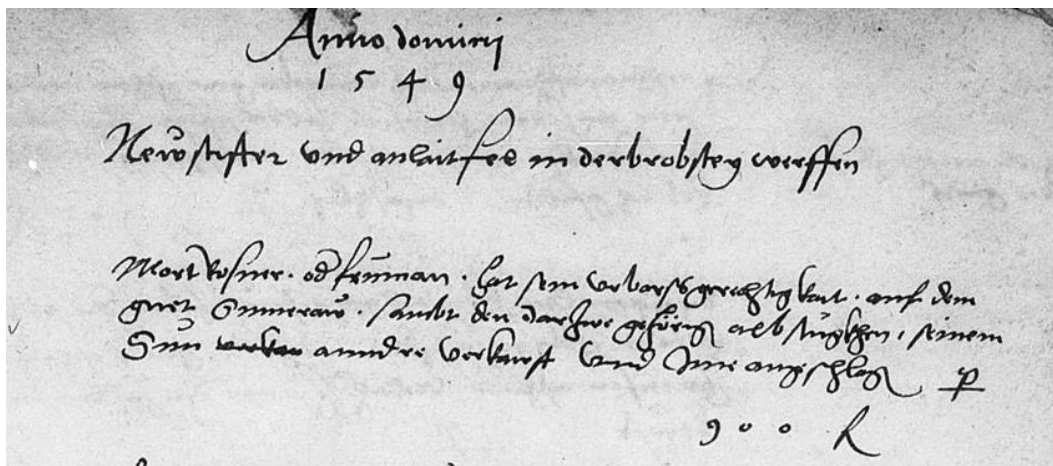 Anno domini
1 5 4 9
Newstifter und anlaitfes in der brobstey werffen
Mort Kosner. od fruman. hat sein urbarsgerechtigkait. auf dem
guet Sunneraw. sambt den darzue gehörig albstugkhen, seinem
Sun verkau anndre verkaufft unnd Ime angschlag p
9 0 0 R